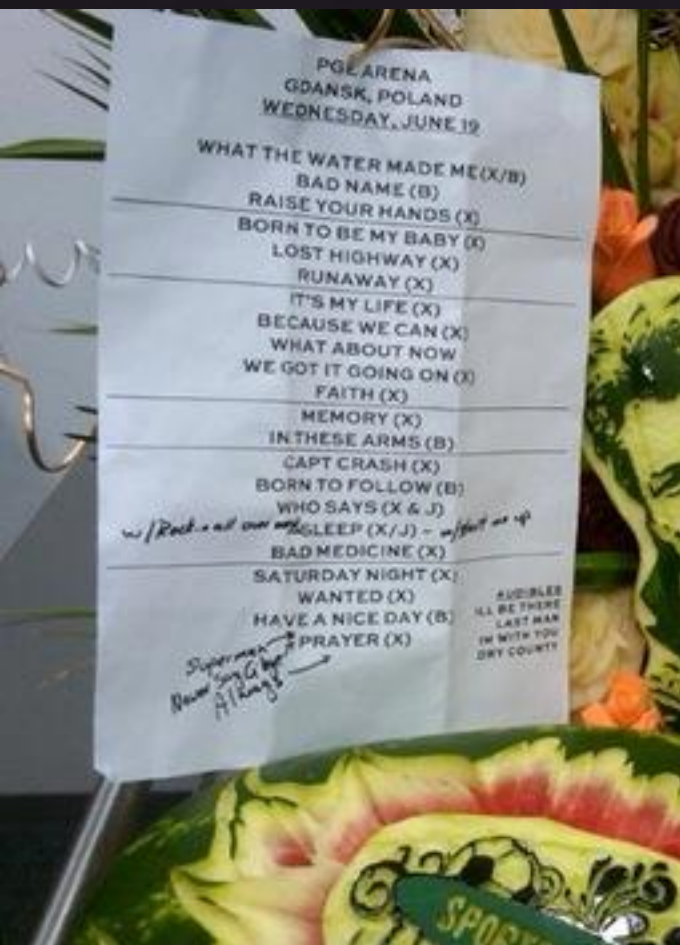 PGE ARENA
GDANSK, POLAND
WEDNESDAY, JUNE 19
WHAT THE WATER MADE ME(X/B)
BAD NAME (B)
RAISE YOUR HANDS (X)
BORN TO BE MY BABY (X)
LOST HIGHWAY (X)
RUNAWAY (X)
IT'S MY LIFE (X)
BECAUSE WE CAN (X)
WHAT ABOUT NOW
WE GOT IT GOING ON (X)
FAITH (X)
MEMORY (X)
IN THESE ARMS (B)
CAPT CRASH (X)
BORN TO FOLLOW (B)
WHO SAYS (X & J)
w/Rock all over SLEEP (X/J) - w/ me up
BAD MEDICINE (X)
SATURDAY NIGHT (X)
WANTED (X)
HAVE A NICE DAY (B)
PRAYER (X)
Superman
Never Say G'bye
Always
AUDIBLES
ILL BE THERE
LAST MAN
IM WITH YOU
DRY COUNTY